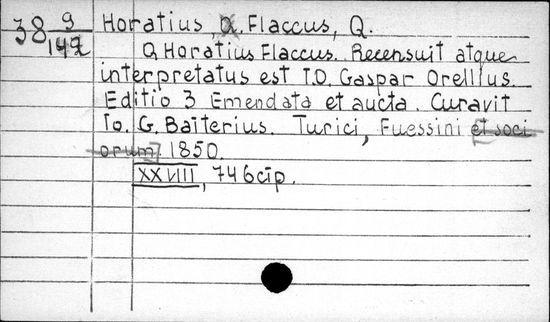 38 9/142
Horatius, Flaccus, Q.
Q. Horatius Flaccus. Recensuit atque
interpretatus est IO. Gaspar Orellius.
Editio 3 Emendata et aucta. Curavit
Io. G. Baiterius. Turici, Fuessini et soci
orum] 1850.
XXVIII, 746 cip.